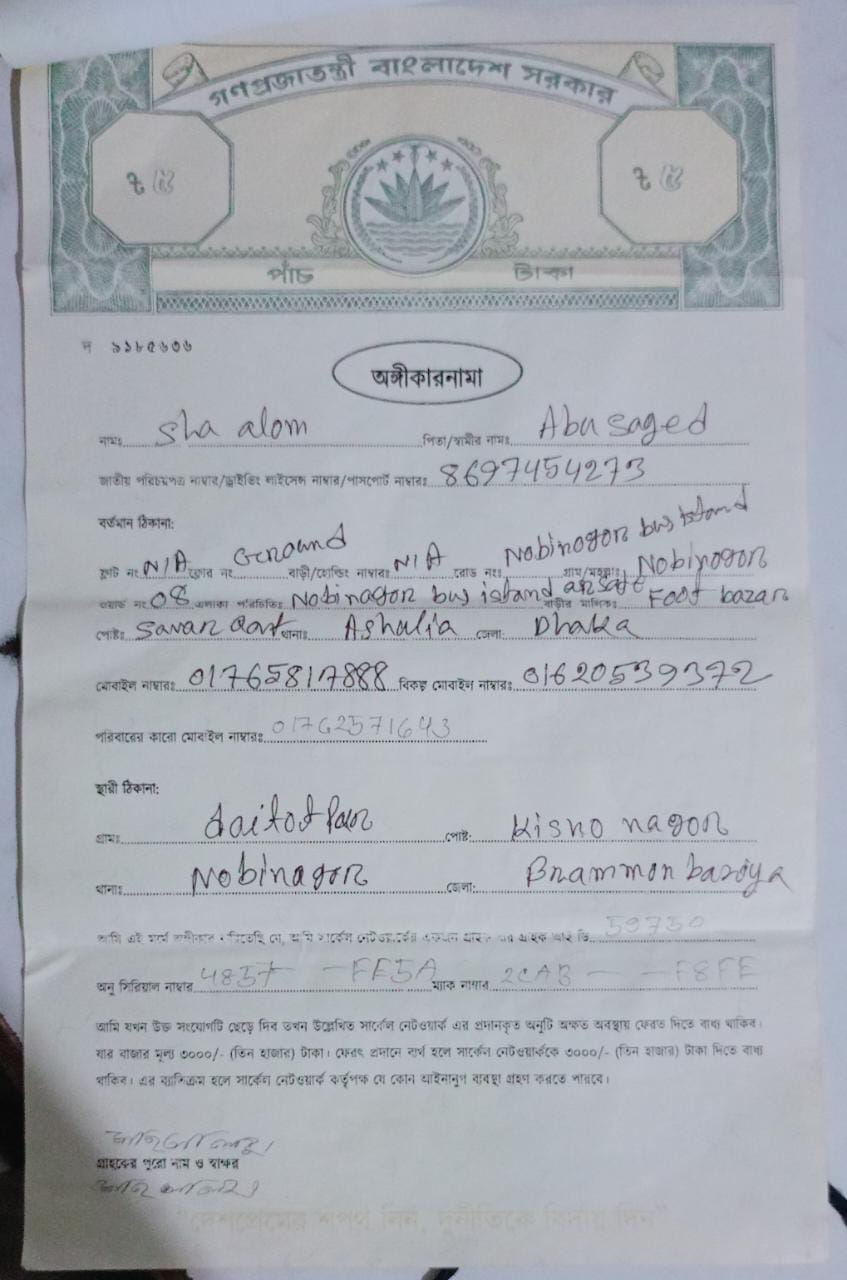 গণপ্রজাতন্ত্রী বাংলাদেশ সরকার
৳ ৫ ৳ ৫
পাঁচ টাকা
প ৯১৮৫৬৩৬
অঙ্গীকারনামা
নামঃ Sha alom পিতা/স্বামীর নামঃ Abu sayed
জাতীয় পরিচয়পত্র নাম্বার/ড্রাইভিং লাইসেন্স নাম্বার/পাসপোর্ট নাম্বারঃ 8697454273
বর্তমান ঠিকানা:
ফ্লাট নং N/A ফ্লোর নং Ground বাড়ী/হোল্ডিং নাম্বারঃ N/A রোড নংঃ Nobinagor bus istand গ্রাম/মহল্লাঃ Nobinagor
ওয়ার্ড নংঃ 08 এলাকা পরিচিতিঃ Nobinagor bus istand বাড়ীর মালিকঃ Foot bazar
পোষ্টঃ Savar থানাঃ Ashulia জেলা: Dhaka
মোবাইল নাম্বারঃ 01765817888 বিকল্প মোবাইল নাম্বারঃ 01620539372
পরিবারের কারো মোবাইল নাম্বারঃ 01762571643
স্থায়ী ঠিকানা:
গ্রামঃ পোষ্ট: Kisno nagor
থানাঃ Nobinagor জেলা: Brammon bariya
আমি এই মর্মে অঙ্গীকার করিতেছি যে, আমি সার্কেল নেটওয়ার্কের একজন গ্রাহক যার গ্রাহক আই ডি 59750
অনু সিরিয়াল নাম্বার 4857 - FE5A ম্যাক নাম্বার 2CAB - - F8FE
আমি যখন উক্ত সংযোগটি ছেড়ে দিব তখন উল্লেখিত সার্কেল নেটওয়ার্ক এর প্রদানকৃত অনুটি অক্ষত অবস্থায় ফেরত দিতে বাধ্য থাকিব।
যার বাজার মূল্য ৩০০০/- (তিন হাজার) টাকা। ফেরৎ প্রদানে ব্যর্থ হলে সার্কেল নেটওয়ার্ককে ৩০০০/- (তিন হাজার) টাকা দিতে বাধ্য
থাকিব। এর ব্যতিক্রম হলে সার্কেল নেটওয়ার্ক কর্তৃপক্ষ যে কোন আইনানুগ ব্যবস্থা গ্রহণ করতে পারবে।
গ্রাহকের পুরো নাম ও স্বাক্ষর
"দেশপ্রেমের শপথ নিন, দুর্নীতিকে বিদায় দিন"